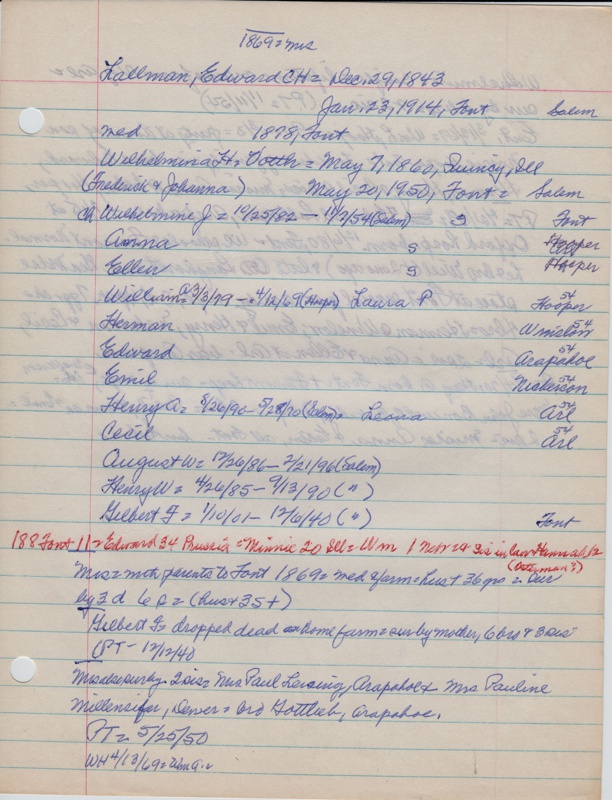 1869 = mrs
Lallman, Edward CH = Dec. 29, 1843
Jan. 23, 1914, Font Salem
med 1878, Font
Wilhelmina H. Votth = May 7, 1860, Quincy, Ill
(Frederick & Johanna) May 20, 1950, Font = Salem
ch Wilhelmine J = 10/25/82 - 11/2/54 (Salem) S Font
Anna S Hooper
Ellen S Hooper
William = 3/3/79 - 4/12/69 (Hooper) Laura P 54 Hooper
Herman 54 Winslow
Edward Arapahoe
Emil 54 Nickerson
Henry A = 8/26/90 - (Salem) = Leona 54 Arl
Cecil 54 Arl
August W = 12/26/86 - 2/21/96 (Salem)
Henry W = 4/26/85 - 9/13/90 (")
Gilbert F = 1/10/01 - 12/6/40 (") Font
188 Font 11 = Edward 34 Prussia = Minnie 20 Ill = Wm 1 Neb = sis in law Hannah 12
(Osterman?)
Mrs = with parents to Font 1869 = med & farm = hus + 36 yrs = sur
by 3 d 6 s = (hus + 35 +)
Gilbert F = dropped dead on home farm = sur by mother, 6 bros & 3 sis
(PT - 12/12/40
Mrs also sur by 2 sis = Mrs Paul Leising, Arapahoe & Mrs Pauline
Millensifer, Denver = bro Gottlieb, Arapahoe.
PT = 5/25/50
WH 4/13/69 = Wm